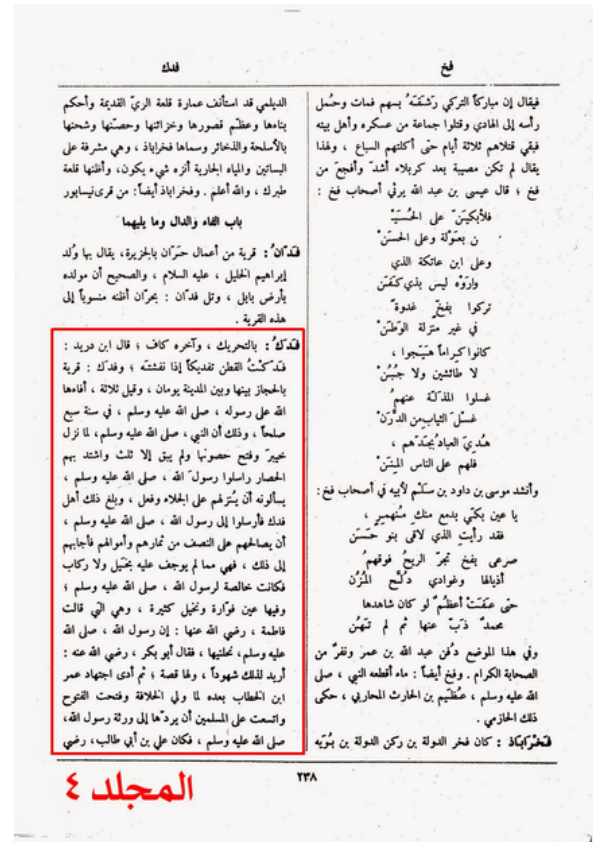 فخ
فدك
فيقال إن مباركاً التركي رَشَقَه بسهم فمات وحُمل
رأسه إلى الهادي وقتلوا جماعة من عسكره وأهل بيته
فبقي قتلاهم ثلاثة أيام حتى أكلتهم السباع ، ولهذا
يقال لم تكن مصيبة بعد كربلاء أشدّ وأفجع من
فخ ؛ قال عيسى بن عبد الله يرثي أصحاب فخ :
فلأبكيَنّ على الحُسَيْـ
ـن بعَوْلة وعلى الحسَنْ
وعلى ابن عاتكة الذي
وارَوْه ليس بذي كفَنْ
تركوا بفخّ غدوة
في غير منزلة الوطَنْ
كانوا كراماً هَيّجوا ،
لا طائشين ولا جُبُنْ
غسلوا المذلّة عنهمُ
غسلَ الثياب من الدّرَنْ
هُديَ العبادُ بجدّهم ،
فلهم على الناس المِنَنْ
وأنشد موسى بن داود بن سَلْم لأبيه في أصحاب فخ :
يا عين بكّي بدمع منك مُنهمر ،
فقد رأيتِ الذي لاقى بنو حَسَن
صرعى بفخ تجرّ الريحُ فوقهمُ
أذيالها وغوادي دلّح المُزُن
حتى عفَتْ أعظُمٌ لو كان شاهدها
محمدٌ ذبّ عنها ثم لم تهُن
وفي هذا الموضع دُفن عبد الله بن عمر ونفرٌ من
الصحابة الكرام . وفخ أيضاً : ماء أقطعه النبي ، صلى
الله عليه وسلم ، عُظَيْم بن الحارث المحاربي ، حكى
ذلك الحازمي .
فَخْراباذ : كان فخر الدولة بن ركن الدولة بن بُوَيه
الديلمي قد استأنف عمارة قلعة الريّ القديمة وأحكم
بناءها وعظّم قصورها وخزائنها وحصّنها وشحنها
بالأسلحة والذخائر وسماها فخراباذ ، وهي مشرفة على
البساتين والمياه الجارية أنزه شيء يكون، وأظنها قلعة
طبرك ، والله أعلم . وفخراباذ أيضاً : من قرى نيسابور
باب الفاء والدال وما يليهما
فَدّانُ : قرية من أعمال حَرّان بالجزيرة، يقال بها وُلد
إبراهيم الخليل ، عليه السلام ، والصحيح أن مولده
بأرض بابل ، وتل فدّان : بحرّان أظنه منسوباً إلى
هذه القرية .
فَدَكُ : بالتحريك ، وآخره كاف ؛ قال ابن دريد :
فَدّكْتُ القطن تفديكاً إذا نفشتَه ؛ وفدك : قرية
بالحجاز بينها وبين المدينة يومان ، وقيل ثلاثة ، أفاءها
الله على رسوله ، صلى الله عليه وسلم ، في سنة سبع
صلحاً ، وذلك أن النبي ، صلى الله عليه وسلم ، لما نزل
خيبر وفتح حصونها ولم يبق إلا ثلث واشتد بهم
الحصار راسلوا رسول الله ، صلى الله عليه وسلم ،
يسألونه أن يُنزلهم على الجلاء وفعل ، وبلغ ذلك أهل
فدك فأرسلوا إلى رسول الله ، صلى الله عليه وسلم ،
أن يصالحهم على النصف من ثمارهم وأموالهم فأجابهم
إلى ذلك ، فهي مما لم يوجف عليه بخيل ولا ركاب
فكانت خالصة لرسول الله ، صلى الله عليه وسلم ؛
وفيها عين فوّارة ونخيل كثيرة ، وهي التي قالت
فاطمة ، رضي الله عنها : إن رسول الله ، صلى الله
عليه وسلم ، نحلنيها ، فقال أبو بكر ، رضي الله عنه :
أريد لذلك شهوداً ، ولها قصة ؛ ثم أدى اجتهاد عمر
ابن الخطاب بعده لما ولي الخلافة وفتحت الفتوح
واتسعت على المسلمين أن يردّها إلى ورثة رسول الله،
صلى الله عليه وسلم ، فكان علي بن أبي طالب، رضي
٢٣٨
المجلد ٤